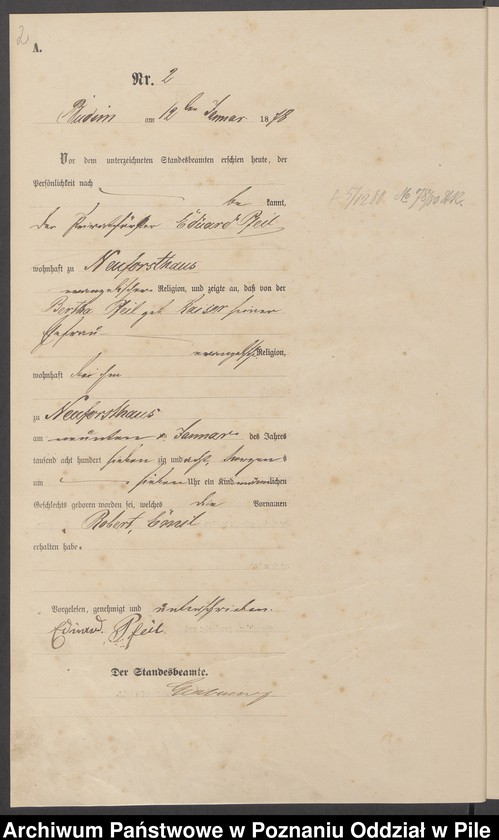 2
A.
Nr. 2
am 12ten Januar 1878
Vor dem unterzeichneten Standesbeamten erschien heute, der
Persönlichkeit nach
be kannt,
der Privatförster Eduard Pfeil
wohnhaft zu Neuforsthaus
evangelischer Religion, und zeigte an, daß von der
Bertha Pfeil geb. Kaiser seiner
Ehefrau
evangelisch Religion,
wohnhaft bei ihm
zu Neuforsthaus
am neunten Januar des Jahres
tausend acht hundert sieben zig und acht, Morgens
um sieben Uhr ein Kind männlichen
Geschlechts geboren worden sei, welches die Vornamen
Robert, Emil
erhalten habe.
Vorgelesen, genehmigt und unterschrieben.
Eduard Pfeil
Der Standesbeamte.
Archiwum Państwowe w Poznaniu Oddział w Pile